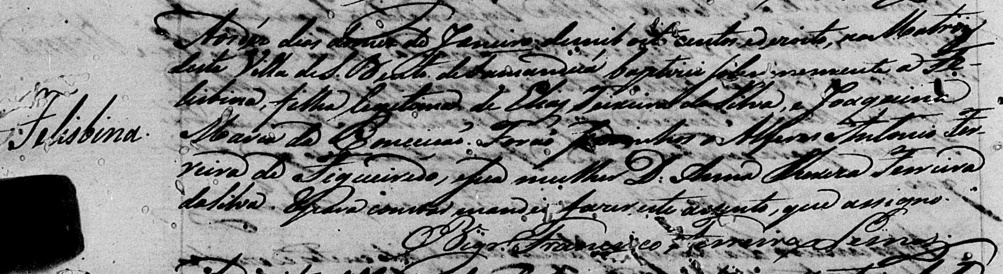 dias do mez de Janeiro de mil oito centos e oito, na Matriz
desta Villa de S. Bento de Tamanduá baptizei solemnemente a Fe-
lisbina, filha legitima de Elias Teixeira da Silva, e Joaquina
Felisbina.
Maria da Conceição. Forão Padrinhos o Alferes Antonio Fer-
reira de Figueiredo, e sua mulher D. Anna Ferreira
da Silva. E para constar mandei fazer este assento, que assigno.
Francisco Ferreira Lemos